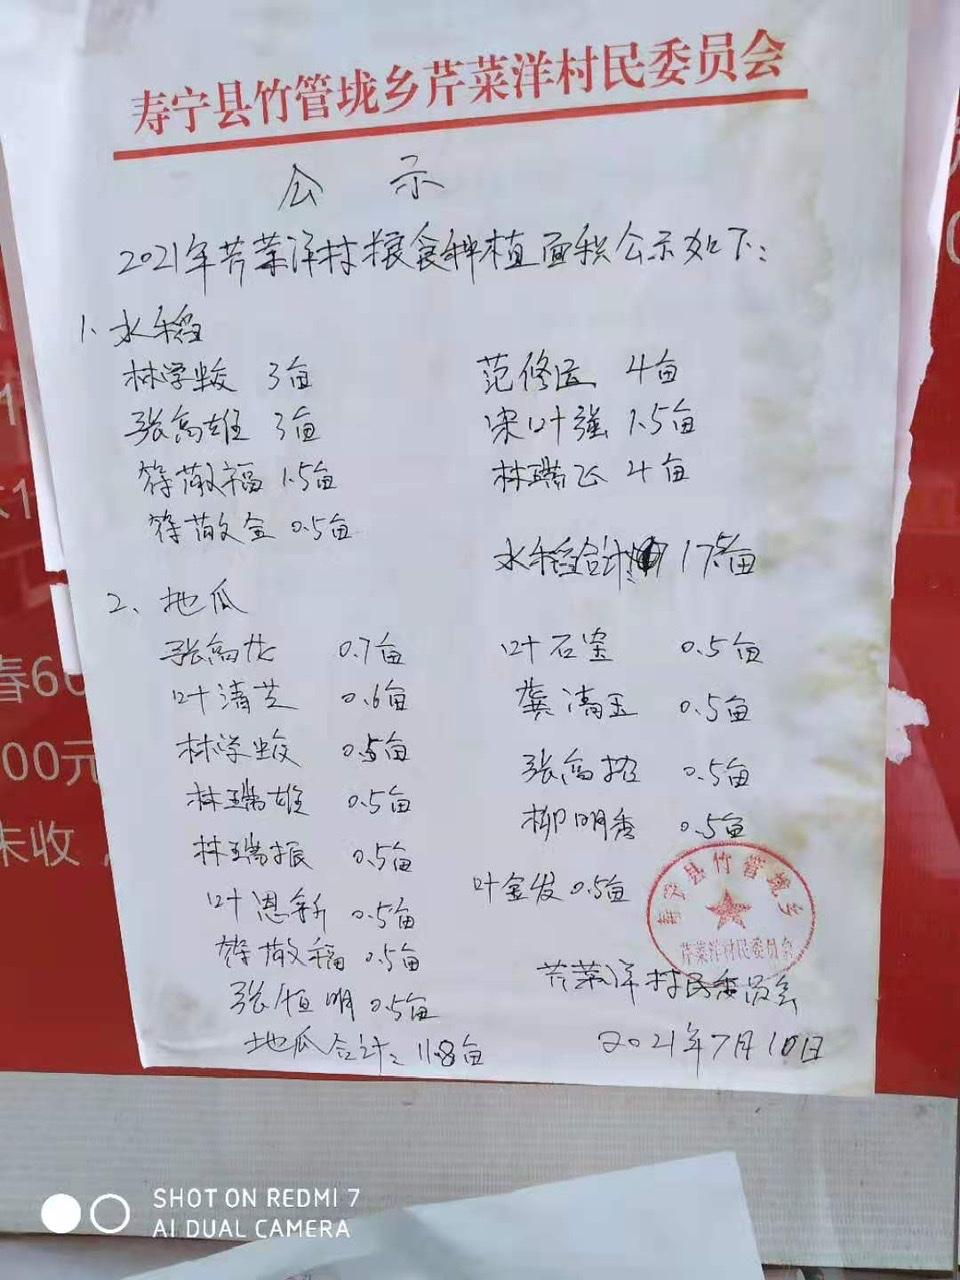 寿宁县竹管垅乡芹菜洋村民委员会
公 示
2021年芹菜洋村粮食种植面积公示如下:
1. 水稻
林学 3亩 范修 4亩
张高雄 3亩 宋叶强 1.5亩
福 1.5亩 林瑞飞 4亩
金 0.5亩
水稻合计 17.5亩
2、地瓜
张高龙 0.7亩 叶石 0.5亩
叶清芝 0.6亩 龚清玉 0.5亩
林学 0.5亩 张高招 0.5亩
林瑞雄 0.5亩 柳明秀 0.5亩
林瑞振 0.5亩 叶金发 0.5亩
叶恩新 0.5亩
福 0.5亩
张恒明 0.5亩
地瓜合计: 11.8亩
寿宁县竹管垅乡
芹菜洋村民委员会
芹菜洋村民委员会
2021年7月10日
春66
00元
未收，
SHOT ON REDMI 7
AI DUAL CAMERA